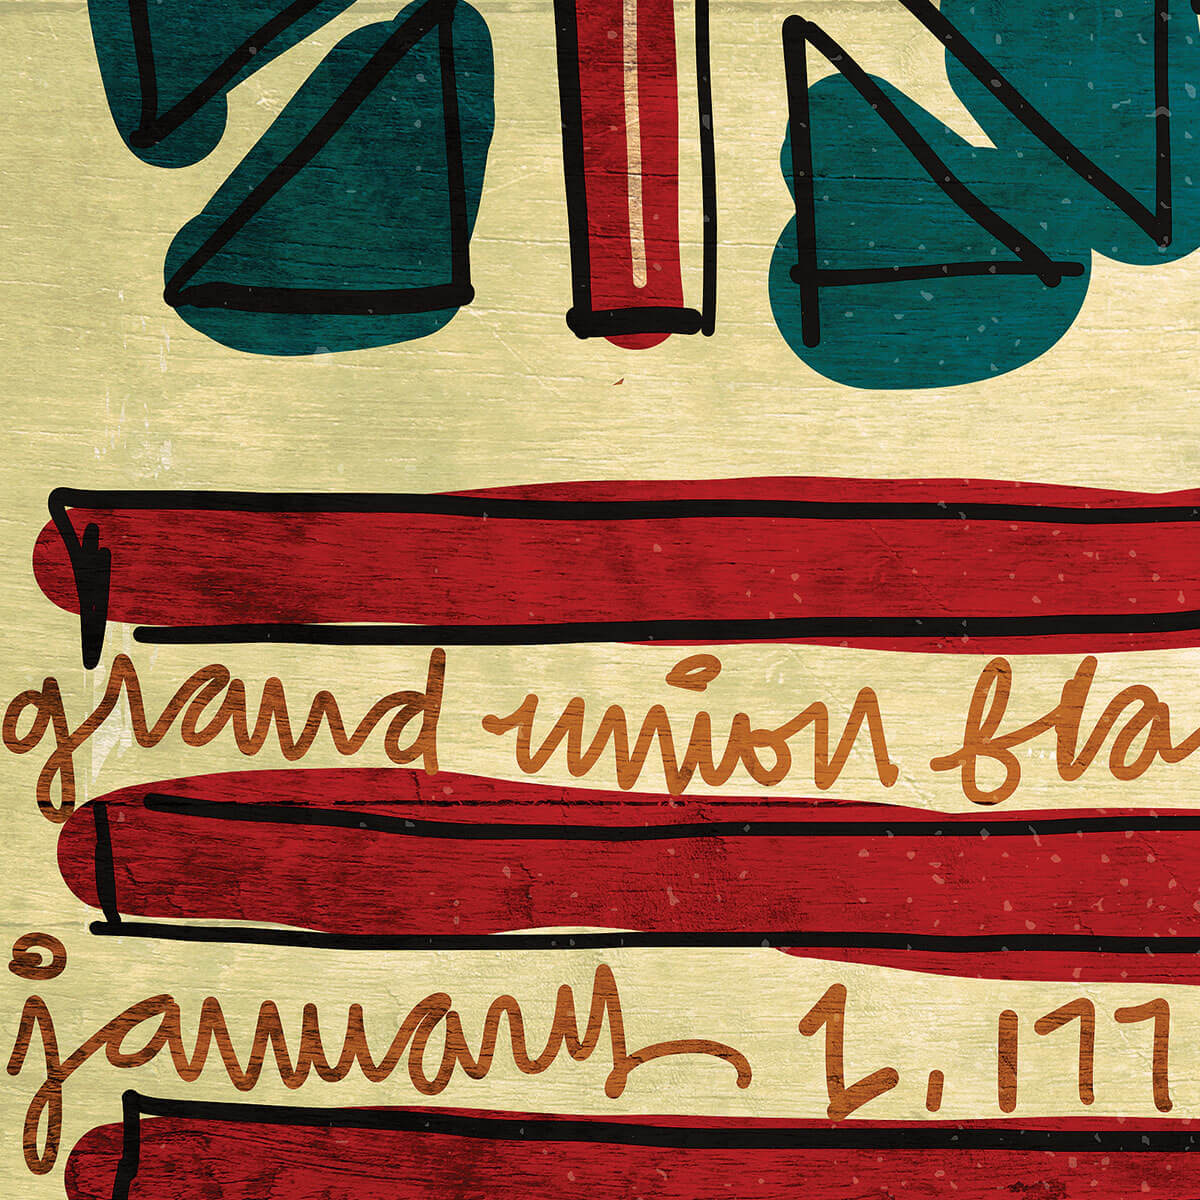 grand union fla
january 1, 177